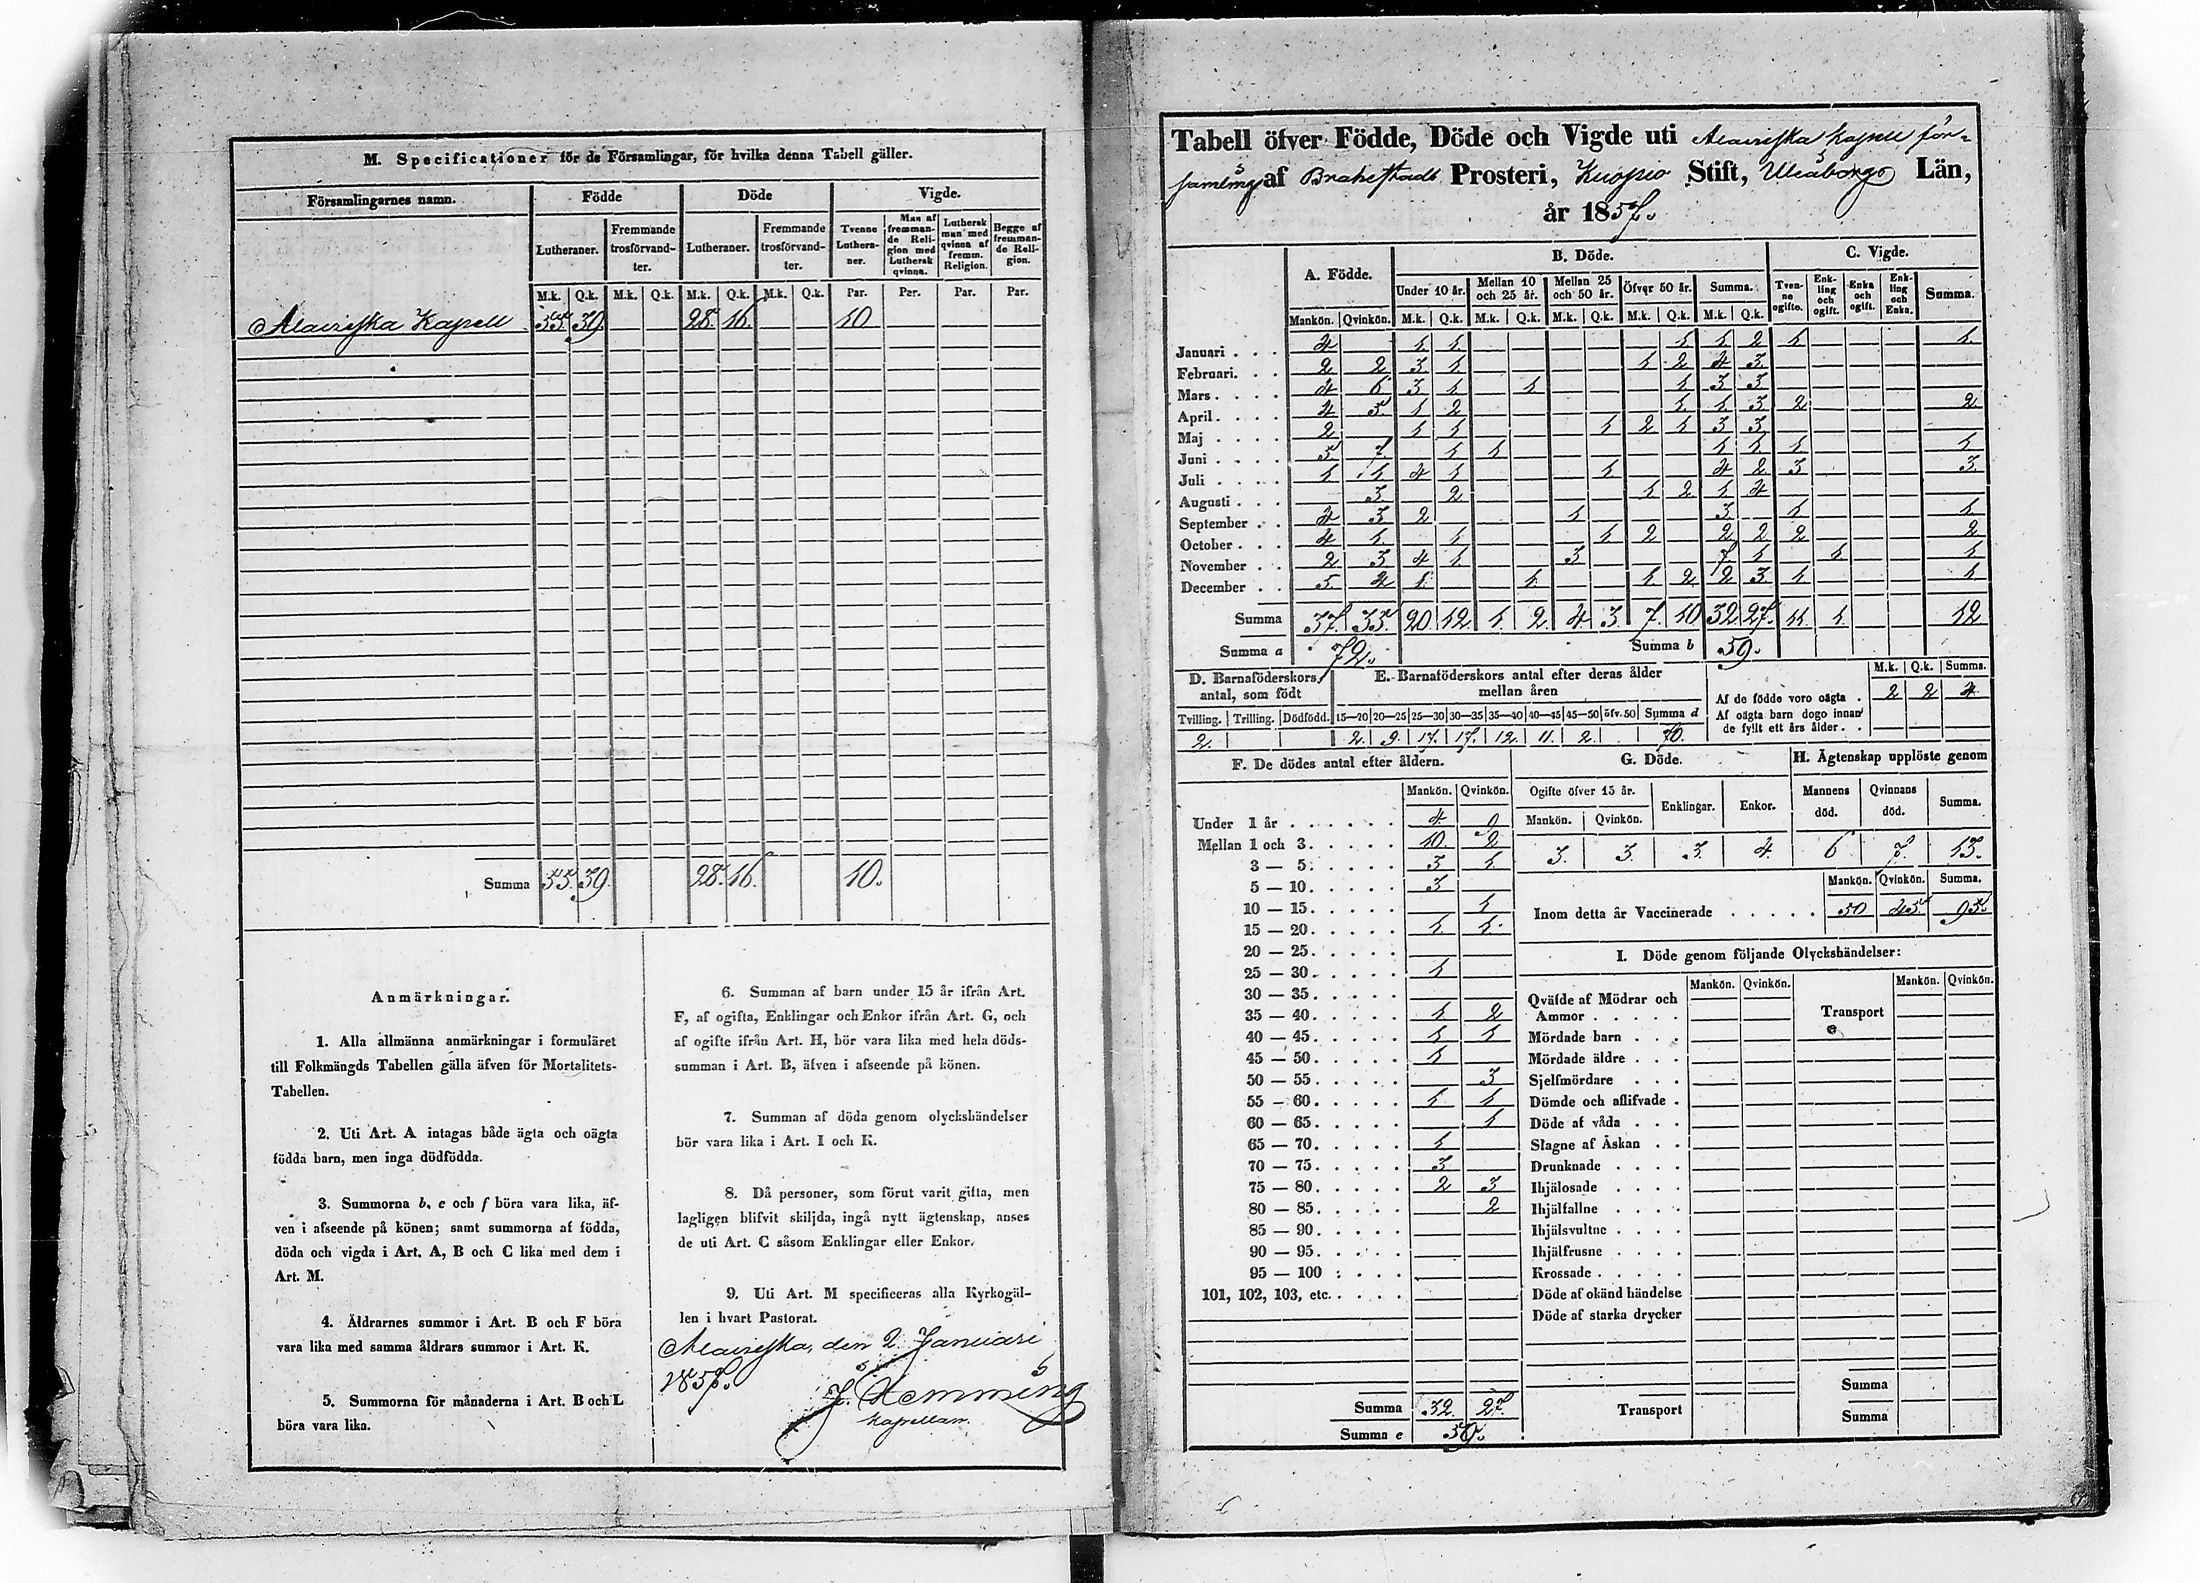 M. Specificationer för de Församlingar, för hvilka denna Tabell gäller.
Församlingarnes namn. Födde Döde Vigde.
Lutheraner. Fremmande trosförvandter. Lutheraner. Fremmande trosförvandter. Tvenne Lutheraner. Man af fremmande Religion med Luthersk qvinna. Luthersk man med qvinna af fremm. Religion. Begge af fremmande Religion.
M.k. Q.k. M.k. Q.k. M.k. Q.k. M.k. Q.k. Par. Par. Par. Par.
Alavieska Kapell 35. 39. 28. 16. 10
Summa 35. 39. 28. 16. 10.
Anmärkningar.
1. Alla allmänna anmärkningar i formuläret
till Folkmängds Tabellen gälla äfven för Mortalitets-
Tabellen.
2. Uti Art. A intagas både ägta och oägta
födda barn, men inga dödfödda.
3. Summorna b, e och f böra vara lika, äf-
ven i afseende på könen; samt summorna af födda,
döda och vigda i Art. A, B och C lika med dem i
Art. M.
4. Åldrarnes summor i Art. B och F böra
vara lika med samma åldrars summor i Art. K.
5. Summorna för månaderna i Art. B och L
böra vara lika.
6. Summan af barn under 15 år ifrån Art.
F, af ogifta, Enklingar och Enkor ifrån Art. G, och
af ogifte ifrån Art. H, bör vara lika med hela döds-
summan i Art. B, äfven i afseende på könen.
7. Summan af döda genom olyckshändelser
bör vara lika i Art. I och K.
8. Då personer, som förut varit gifta, men
lagligen blifvit skiljda, ingå nytt ägtenskap, anses
de uti Art. C såsom Enklingar eller Enkor.
9. Uti Art. M specificeras alla Kyrkogäl-
len i hvart Pastorat.
Alavieska, den 2 Januari
1857.
J. Hemming
Kapellan.
Tabell öfver Födde, Döde och Vigde uti Alavieska Kapell för-
samling af Brahestads Prosteri, Kuopio Stift, Uleåborgs Län,
år 1857.
A. Födde. B. Döde. C. Vigde.
Under 10 år. Mellan 10 och 25 år. Mellan 25 och 50 år. Öfver 50 år. Summa. Tvenne ogifte. Enkling och ogift. Enka och ogift. Enkling och Enka. Summa.
Mankön. Qvinkön. M.k. Q.k. M.k. Q.k. M.k. Q.k. M.k. Q.k. M.k. Q.k.
Januari . . . 4 1 1 1 1 2 1 1.
Februari. . . 2 2 3 1 1 2 4 3
Mars . . . . 4 6 3 1 1 1 3 3
April . . . . 4 3 1 2 1 1 3 2 2
Maj . . . . 2 1 1 1 2 1 3 3
Juni . . . . 5 7 1 1 1 1 1 1
Juli . . . . 1 1 4 1 1 4 2 3 3
Augusti . . . 3 2 1 2 1 4
September . . 4 3 2 1 3 1 1
October . . . 4 1 1 1 2 2 2 2 2
November . . 2 3 4 1 3 7 1 1 1
December . . 5 4 1 1 1 2 2 3 1 1
Summa 37. 35. 20 12 1. 2 4 3 7. 10 32 27. 11 1 12
Summa a 72. Summa b 59.
D. Barnaföderskors antal, som födt
E. Barnaföderskors antal efter deras ålder mellan åren
M.k. Q.k. Summa.
Af de födde voro oägta . 2 2 4
Af oägta barn dogo innan de fyllt ett års ålder . .
Tvilling. Trilling. Dödfödd. 15—20 20—25 25—30 30—35 35—40 40—45 45—50 öfv. 50 Summa d
2. 2. 9. 17. 17. 12. 11. 2. 70.
F. De dödes antal efter åldern. G. Döde. H. Ägtenskap upplöste genom
Mankön. Qvinkön. Ogifte öfver 15 år. Enklingar. Enkor. Mannens död. Qvinnans död. Summa.
Mankön. Qvinkön.
3. 3. 3. 4. 6 7. 13.
Under 1 år . . . . . . 4 9
Mellan 1 och 3. . . . . 10. 2
3 — 5. . . . . 3 1
5 — 10. . . . . 3
10 — 15. . . . . 1
15 — 20. . . . . 1. 1.
20 — 25. . . . .
25 — 30. . . . . 1
30 — 35. . . . .
35 — 40. . . . . 1 2
40 — 45. . . . . 1 1
45 — 50. . . . . 1
50 — 55. . . . . 3
55 — 60. . . . . 1 1
60 — 65. . . . . 1
65 — 70. . . . . 1
70 — 75. . . . . 3
75 — 80. . . . . 2 3
80 — 85. . . . . 2
85 — 90. . . . .
90 — 95. . . . .
95 — 100 : . . . .
101, 102, 103, etc. . . . .
Summa 32. 27.
Summa e 59.
Mankön. Qvinkön. Summa.
Inom detta år Vaccinerade . . . . . 50 45 95.
I. Döde genom följande Olyckshändelser:
Mankön. Qvinkön. Mankön. Qvinkön.
Qväfde af Mödrar och
Ammor . . . . . Transport
Mördade barn . . .
Mördade äldre . . .
Sjelfmördare . . .
Dömde och aflifvade .
Döde af våda . . .
Slagne af Åskan . .
Drunknade . . . .
Ihjälosade . . . .
Ihjälfallne . . . .
Ihjälsvultne . . . .
Ihjälfrusne . . . .
Krossade . . . . .
Döde af okänd händelse
Döde af starka drycker
Summa
Transport Summa